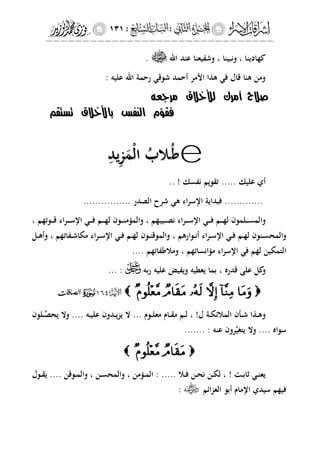 إشراقات الإسراء : الجزء الثاني : البيان السابع : ١٣١
كهادينا ، ونبينا ، وشفيعنا عند الله ﷺ .
ومن هنا قال في هذا الأمر أحمد شوقي رحمة الله عليه :
صلاح أمرك للأخلاق مرجعه
فقوّم النفس بالأخلاق تستقم
طُلابُ الْمَزِيدِ
أي عليك ..... تقويم نفسك ! ..
............. فبداية الإسراء هي شرح الصدر ................
والمسلمون لهم في الإسراء نصيبهم ، والمؤمنون لهم في الإسراء قوتهم ،
والمحسنون لهم في الإسراء أنوارهم ، والموقنون لهم في الإسراء مكاشفاتهم ، وأهل
التمكين لهم في الإسراء مؤانساتهم ، وملاطفاتهم ....
وكل على قدره ، بما يعطيه ويفيض عليه ربه ... :
﴿ وَمَا مِنَّآ إِلَّا لَهُۥ مَقَامٌ مَّعْلُومٌ ﴾ الآية ١٦٤ الصافات
وهذا شأن الملائكة ل! ، لهم مقام معلوم ... لا يزيدون عليه .... ولا يحصّلون
سواه .... ولا يتغيّرون عنه : .......
﴿ مَقَامٌ مَّعْلُومٌ ﴾
يعني ثابت ! ، لكن نحن فلا ..... : المؤمن ، والمحسن ، والموقن .... يقول
فيهم سيدي الإمام أبو العزائم :